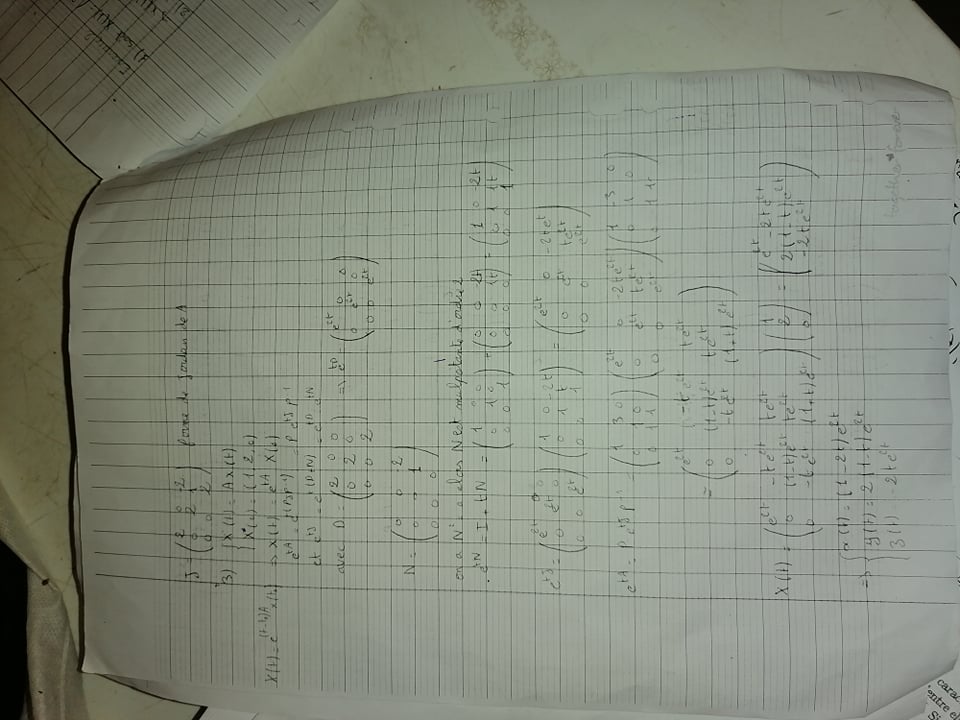 J = ( 2 0 -2 ; 0 2 1 ; 0 0 2 ) forme de Jordan de A
3) { X'(t) = A x(t)
X(0) = (1, 2, 0)
X(t) = e^{(t-t₀)A} x(t₀) ⇒ x(t) = e^{tA} X(0)
e^{tA} = e^{t(PJP^{-1})} = P e^{tJ} P^{-1}
et e^{tJ} = e^{t(D+N)} = e^{tD} . e^{tN}
avec D = ( 2 0 0 ; 0 2 0 ; 0 0 2 ) ⇒ e^{tD} = ( e^{2t} 0 0 ; 0 e^{2t} 0 ; 0 0 e^{2t} )
N = ( 0 0 -2 ; 0 0 1 ; 0 0 0 )
on a N² = 0 alors N est d'ordre 2
e^{tN} = I + tN = ( 1 0 0 ; 0 1 0 ; 0 0 1 ) + ( 0 0 -2t ; 0 0 1t ; 0 0 0 ) = ( 1 0 -2t ; 0 1 1t ; 0 0 1 )
e^{tJ} = ( e^{2t} 0 0 ; 0 e^{2t} 0 ; 0 0 e^{2t} ) ( 1 0 -2t ; 0 1 t ; 0 0 1 ) = ( e^{2t} 0 -2te^{2t} ; 0 e^{2t} te^{2t} ; 0 0 e^{2t} )
e^{tA} = P e^{tJ} P^{-1} = ( 1 3 0 ; 0 1 0 ; 0 1 1 ) ( e^{2t} 0 -2te^{2t} ; 0 e^{2t} te^{2t} ; 0 0 e^{2t} ) ( 1 -3 0 ; 0 1 0 ; 0 )
= ( e^{2t} -te^{2t} te^{2t} ; 0 (1-t)e^{2t} te^{2t} ; 0 -te^{2t} (1+t)e^{2t} )
X(t) = ( e^{2t} -te^{2t} te^{2t} ; 0 (1-t)e^{2t} te^{2t} ; 0 -te^{2t} (1+t)e^{2t} ) ( 1 ; 2 ; 0 ) = ( e^{2t} - 2te^{2t} ; 2(1-t)e^{2t} ; -2te^{2t} )
⇒ { x(t) = (1-2t)e^{2t}
y(t) = 2(1-t)e^{2t}
z(t) = -2te^{2t}
together forever
Exercice 2
1) soit X(t) =
2)